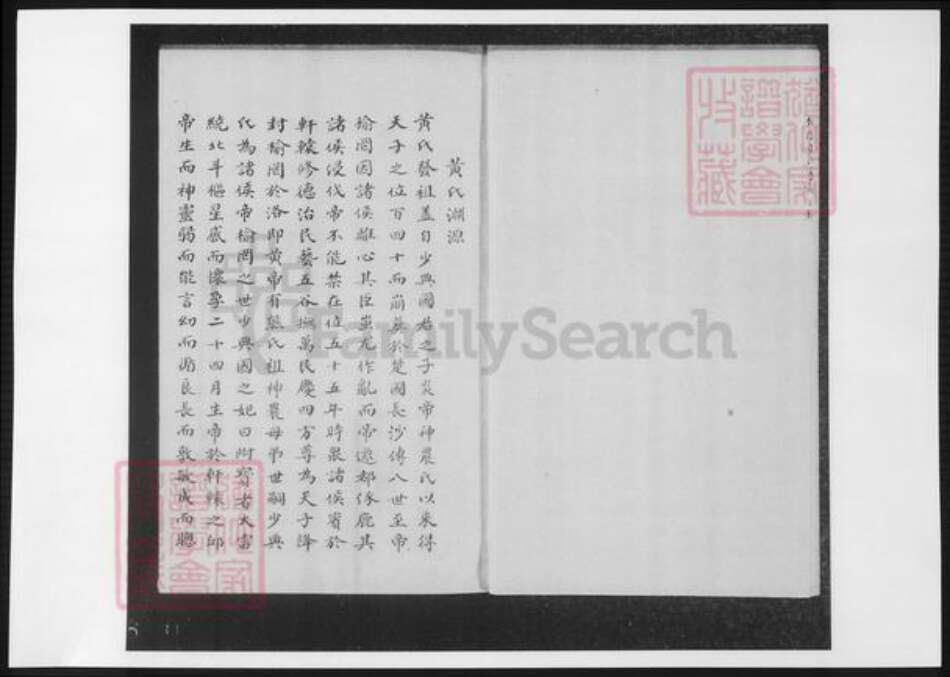 黄氏淵源
黄氏發祖蓋自少典國君之子炎帝神農氏以來得
天子之位百四十而崩葬於楚國長沙傳八世至帝
榆罔因諸侯離心其臣蚩尤作亂而帝遜都涿鹿其
諸侯侵伐帝不能禁在位五十五年時衆諸侯賓於
軒轅修德治民藝五谷撫萬民慶四方尊為天子降
封榆罔於洛即黄帝有熊氏祖神農母弟世嗣少典
氏為諸侯帝榆罔之世少典國之妃曰附寳者大電
繞北斗樞星感而懷孕二十四月生帝於軒轅之邱
帝生而神靈弱而能言幼而長而敦敏成而聰
FamilySearch
譜學會
收藏